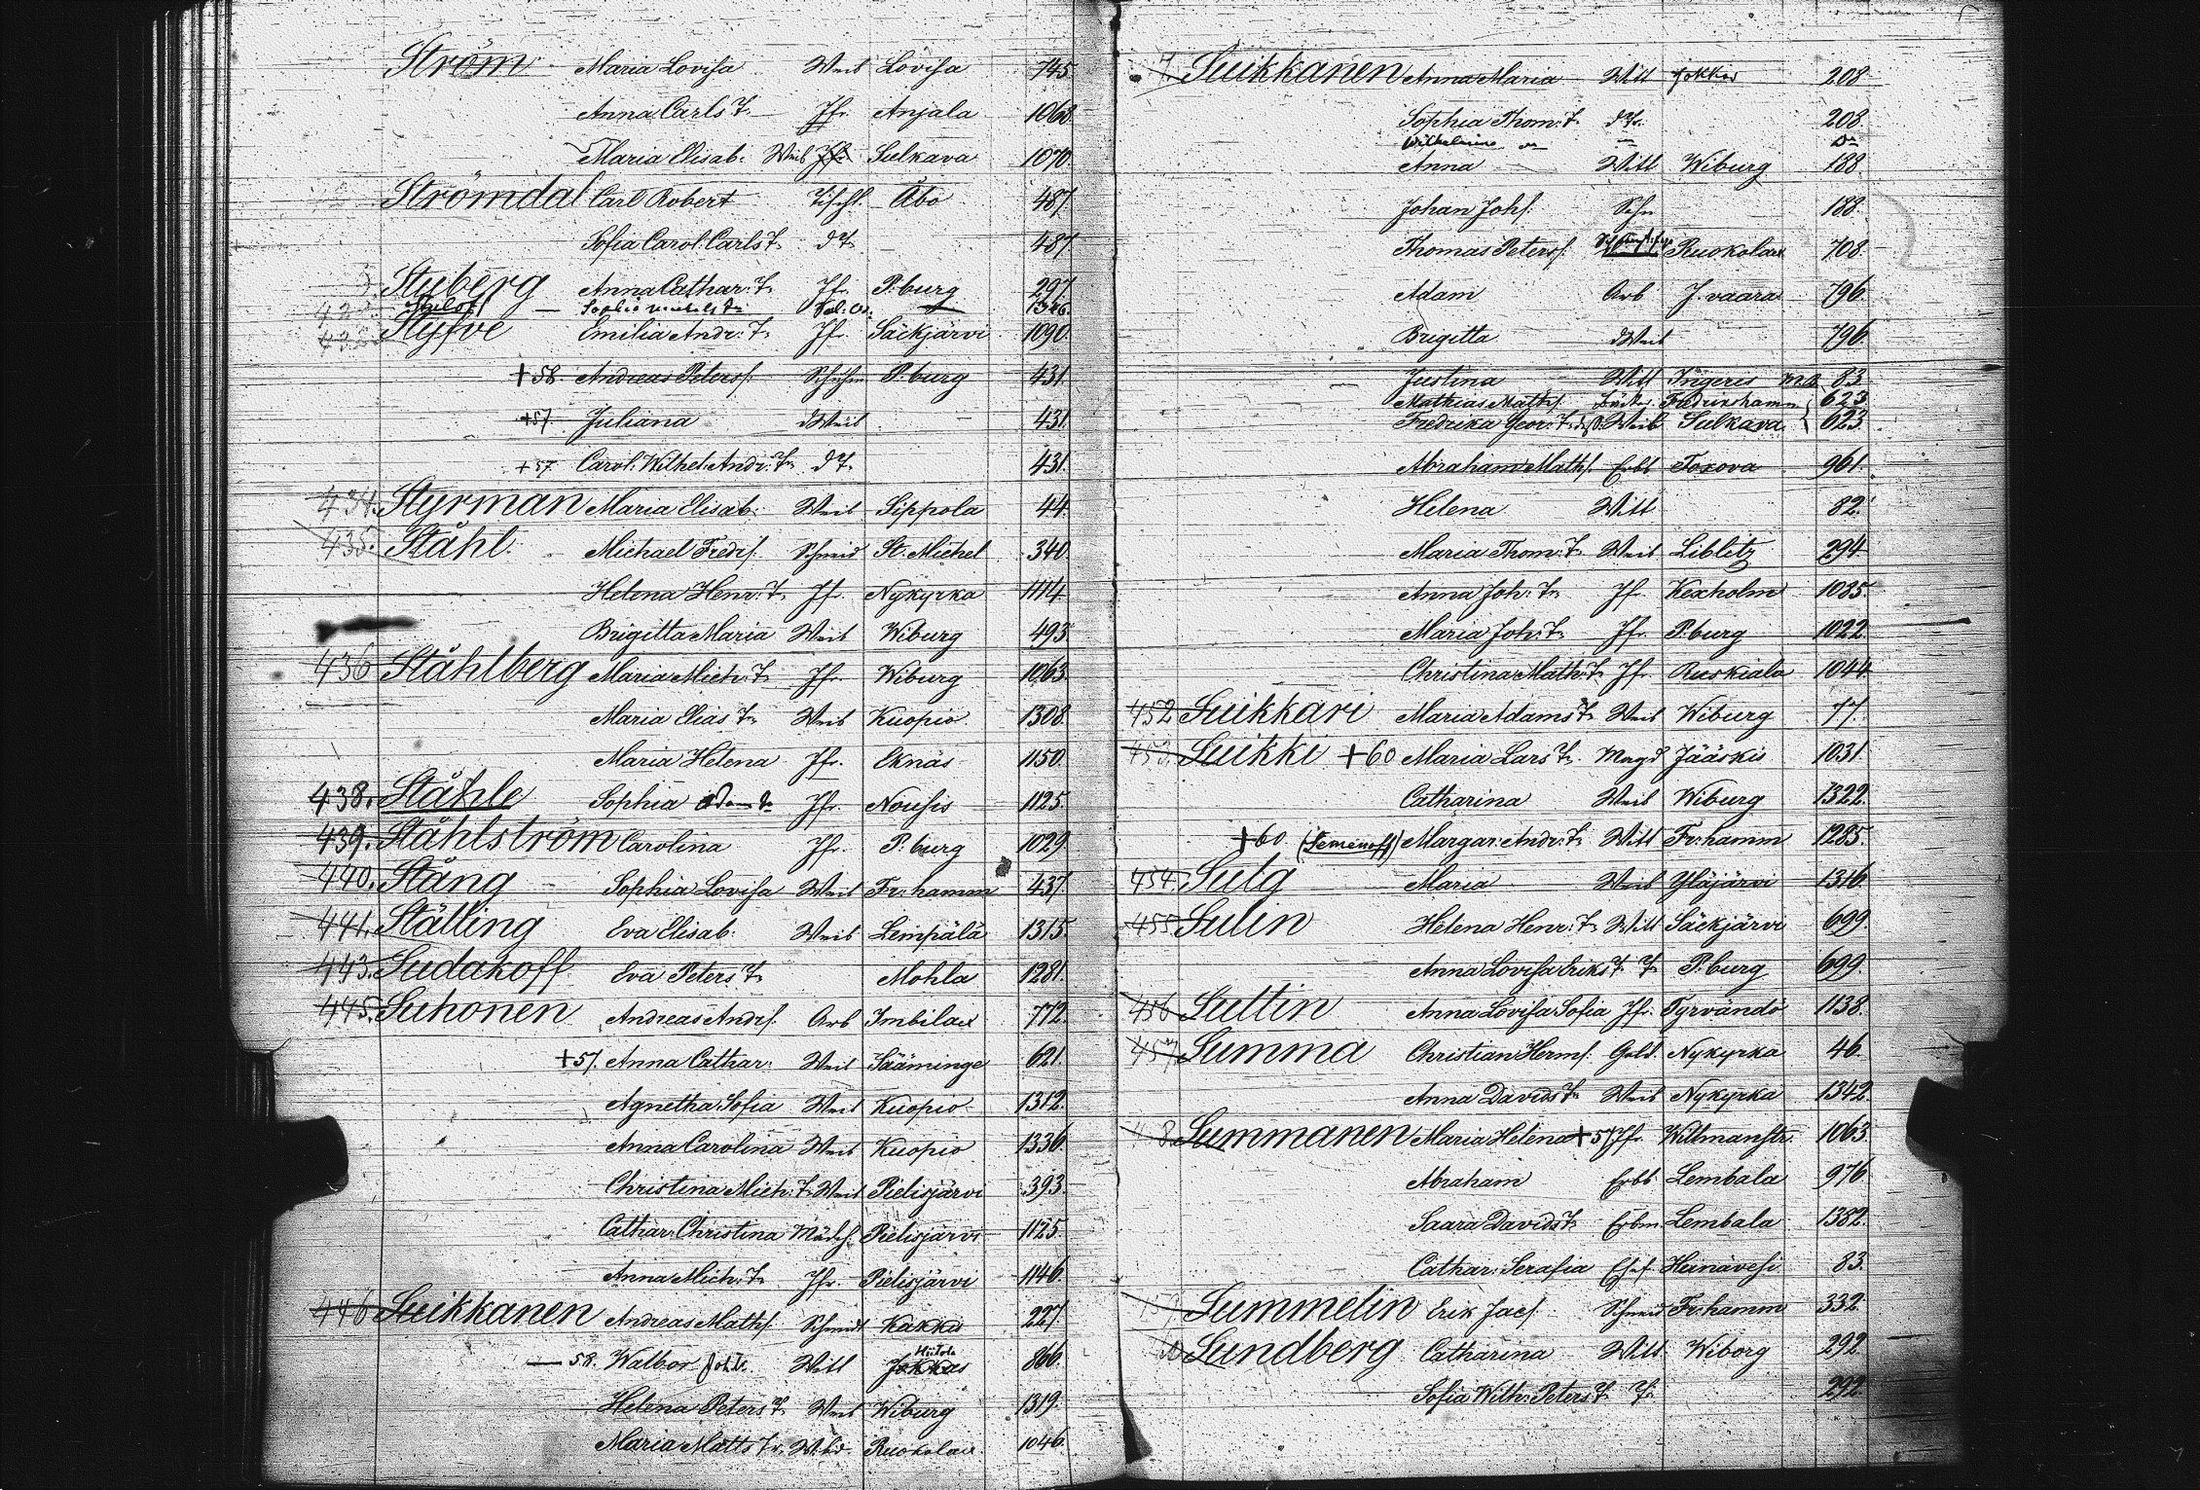 Ström Maria Lovisa Weib Lovisa 745
Anna Carls T. Jfr. Anjala 1068
Maria Elisab. Weib Jfr. Sulkava 1070
Strömdal Carl Robert Tischl. Åbo 487
Sofia Carol. Carls T. d T. 487
Stuberg Anna Cathar. T. Jf. P.burg 297
Sophia 1346
435 Styfve Emilia Andr. T. Jf. Säkjärvi 1090
+58. Andreas Peterss. Schuhm P.burg 431
+57. Juliana d Weib 431
+57 Carol. Wilhel. Andr. T. d T. 431
434. Styrman Maria Elisab. Weib Sippola 44
435. Ståhl. Michael Fredrs. Schmid St. Michel 340
Helena Henr. T. Jf. Nykyrka 1114
Brigitta Maria Weib Wiburg 493
436 Ståhlberg Maria Mich. T. Jfr. Wiburg 1063
Maria Elias T. Weib Kuopio 1308
Maria Helena Jfr. Eknäs 1150.
438. Ståhle Sophia Adams Tr Jfr. Nousis 1125
439. Ståhlström Carolina Jfr. P.burg 1029
440. Stång Sophia Lovisa Weib Fr:hamm 437
441. Stätling Eva Elisab. Weib Lempälä 1315
443. Sudakoff Eva Peters T. Mohla 1281
445. Suhonen Andreas Andrs. Arb Imbilax 772
+57. Anna Cathar. Weib Sääminge 621
Agnetha Sofia Weib Kuopio 1312
Anna Carolina Weib Kuopio 1336
Christina Mich. T. Weib Pielisjärvi 393
Cathar. Christina Mädch. Pielisjärvi 1125
Anna Mich. T. Jfr. Pielisjärvi 1146
446 Suikkanen Andreas Maths. Schmidt Kakkis 227
Hiitola
— 58. Walbor Joh. Tr. Witt Jokkas 866
Helena Peters T. Weib Wiburg 1319
Maria Matts Tr. Wbd. Ruokolax 1046
Suikkanen Anna Maria Witt Jokkas 208
Sophia Thom. T. d Tr. 208
Wilhelmine
Anna Witt Wiburg 188
Johan Johs. Sohn 188
Thomas Peterss. Ruokolax 708
Adam Arb J.vaara 796
Brigitta d Weib 796
Justina Witt Ingeris 83
Mathias Maths. Fredrikshamn 623
Fredrika Geor. T. Weib Sulkava 623
Abraham Maths. Erbt Toxova 961
Helena Witt 82
Maria Thom. T. Weib Liblitz 294
Anna Joh. T. Jf. Kexholm 1085
Maria Joh. T. Jfr. P.burg 1022
Christina Math. T. Jfr. Ruskiala 1044
452 Suikkari Maria Adams T. Weib Wiburg 77.
453. Suikki +60 Maria Lars T. Magd Jääskis 1031
Catharina Weib Wiburg 1322
+60 (Semenoff) Margar. Andr. T. Witt Fr:hamm 1285
454. Sulg Maria Weib Yläjärvi 1316
455 Sulin Helena Henr. T. Witt Säckjärvi 699
Anna Lovisa Eriks T. T. P.burg 699
456 Sultin Anna Lovisa Sofia Jfr. Tyrvändö 1138
457 Summa Christian Herms. Gold. Nykyrka 46
Anna Davids T. Weib Nykyrka 1342
Summanen Maria Helena +57 Jfr. Willmanstr. 1063
Abraham Erbt Lembala 976
Saara Davids T. Erbm Lembala 1382
Cathar. Serafia Ehef. Heinävesi 83
Summelin Erik Jacs. Schmid Fr:hamm 332
Sundberg Catharina Witt Wiborg 292
Sofia Wilh. Peters T. T. 292